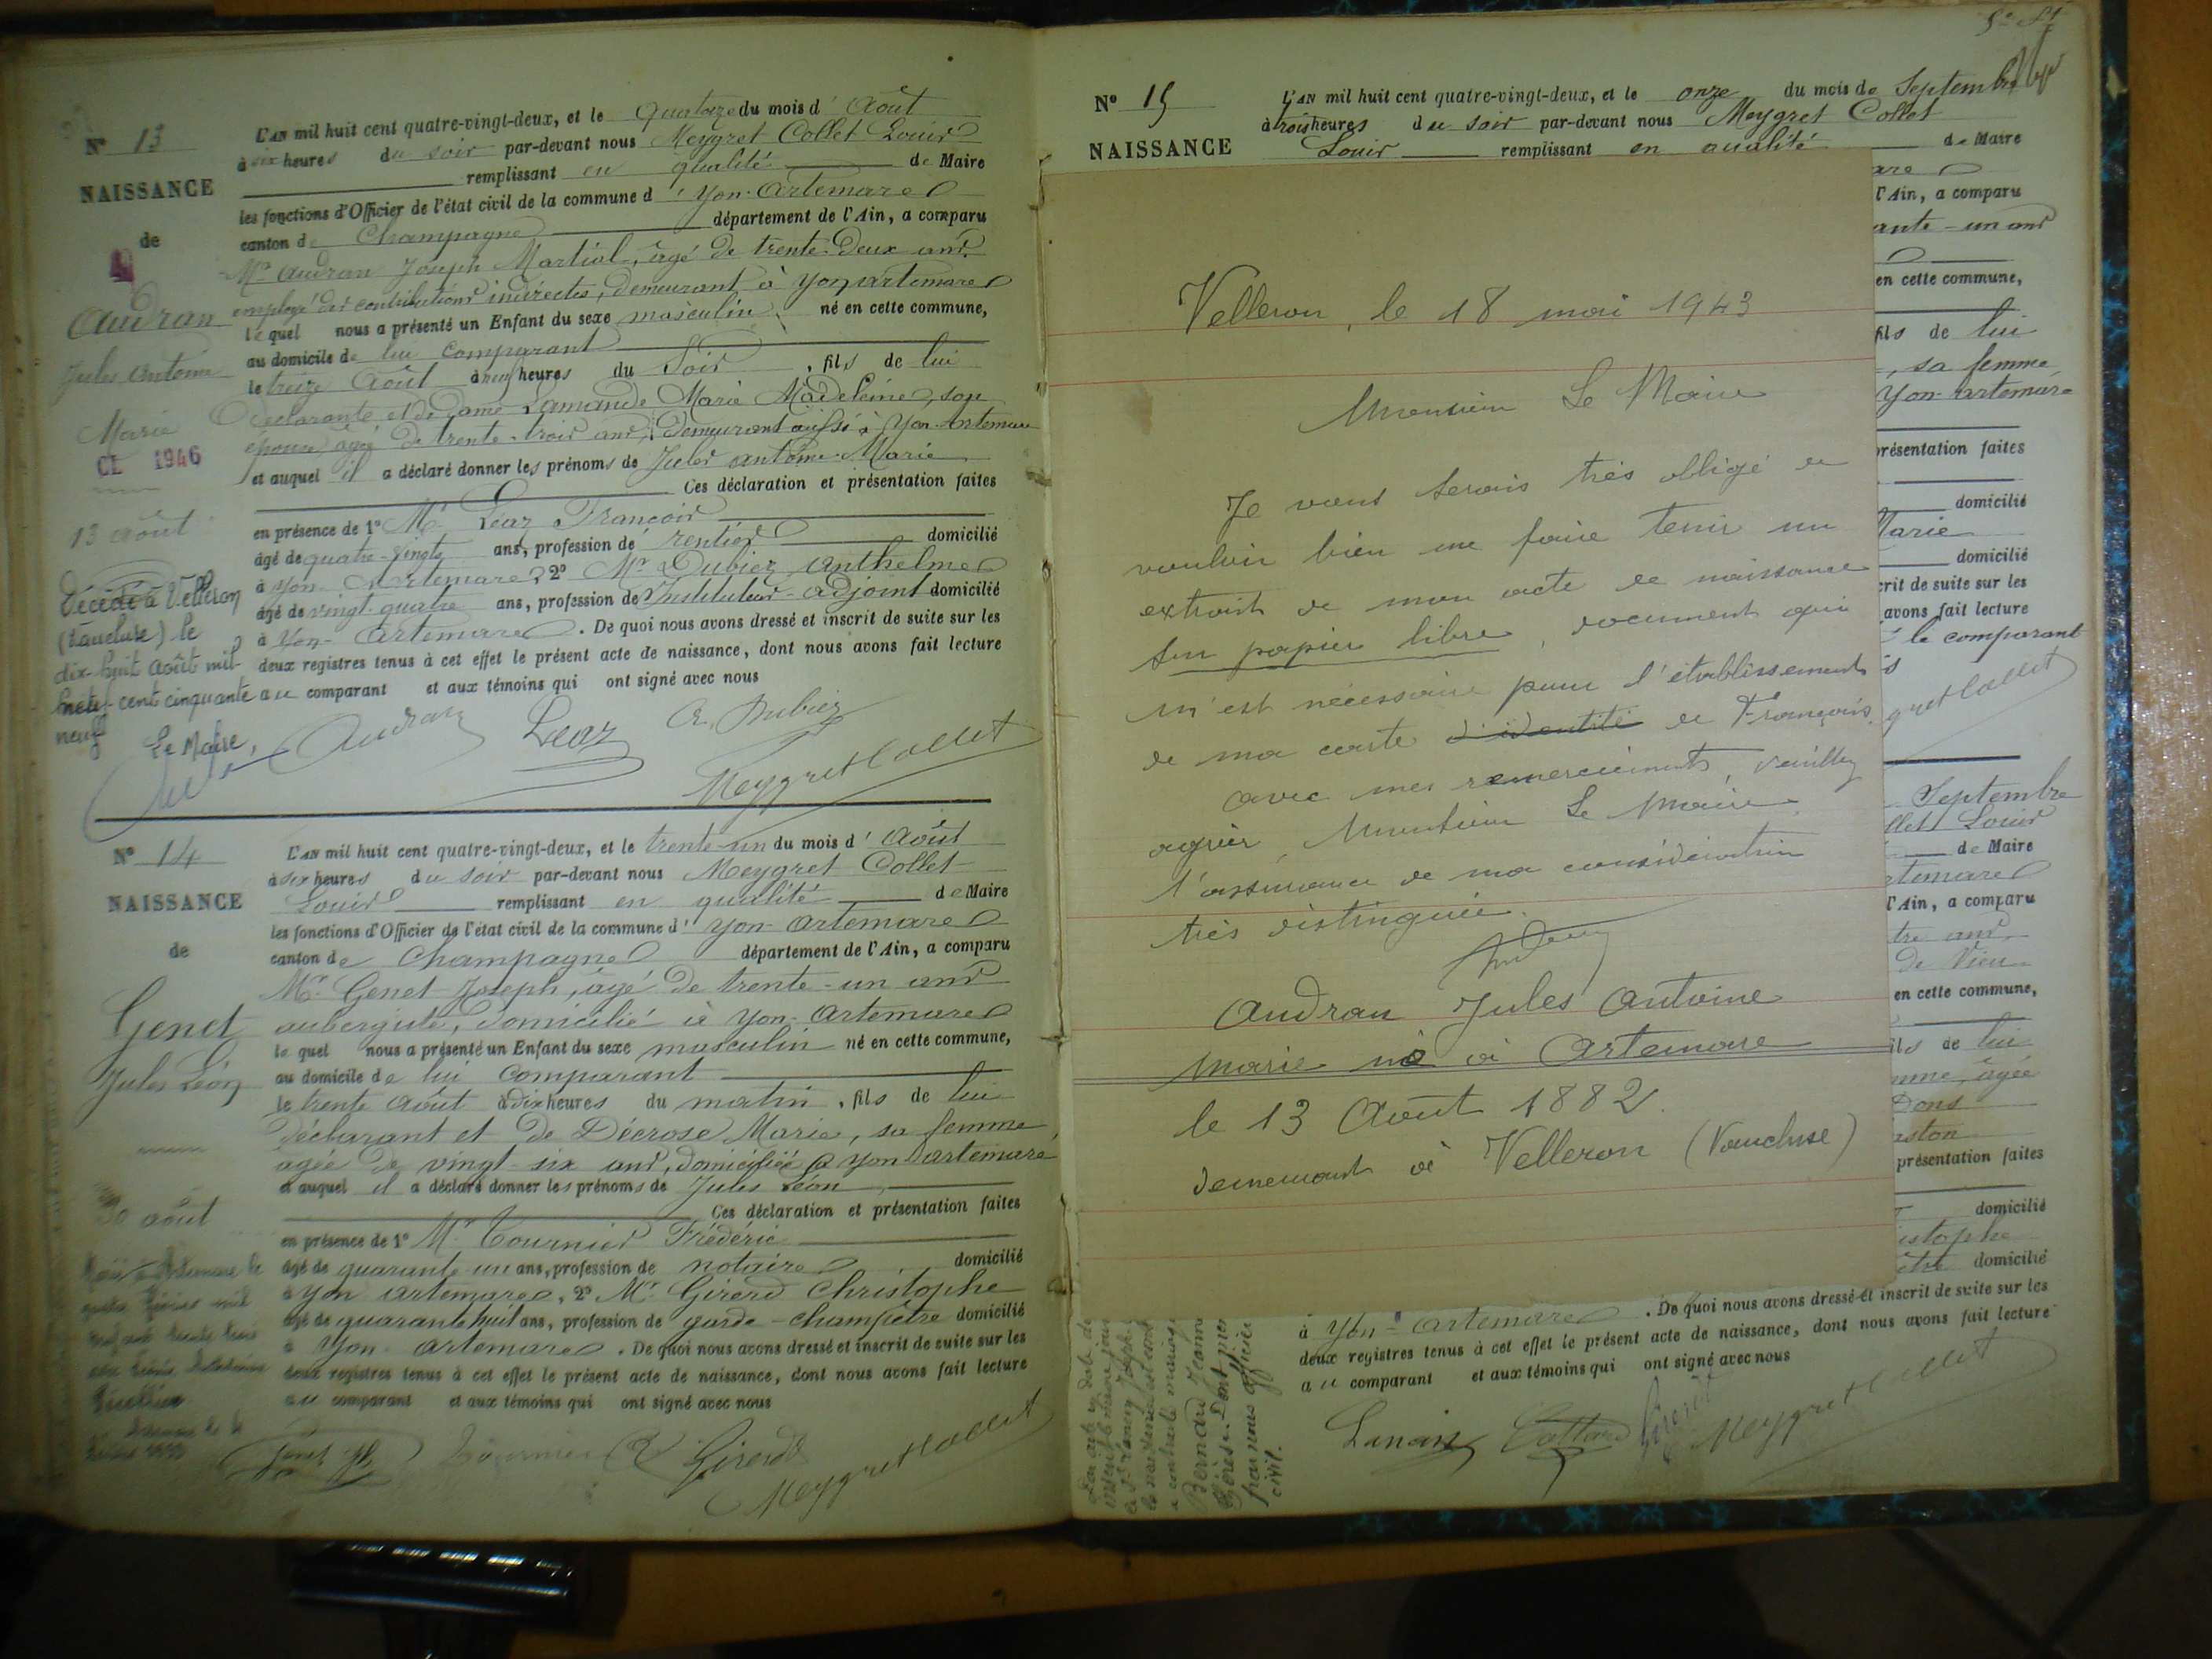 Nº 13
NAISSANCE
de
Audran
Jules Antoine
Marie
CL 1946
13 août
Décédé à Velleron
(Vaucluse) le
dix-huit août mil
neuf cent cinquante
neuf
Le Maire,
L'AN mil huit cent quatre-vingt-deux, et le Quatorze du mois d'Août
à six heures du soir par-devant nous Meygret Collet Louis
remplissant en qualité de Maire
les fonctions d'Officier de l'état civil de la commune d'Yon-Artemare
canton de Champagne département de l'Ain, a comparu
Mr Audran Joseph Martial, âgé de trente-deux ans,
employé des contributions indirectes, demeurant à Yon artemare
lequel nous a présenté un Enfant du sexe masculin né en cette commune,
au domicile de lui comparant
le treize Août à neuf heures du Soir, fils de lui
déclarante et de dame Lamande Marie Madeleine, son
épouse, âgée de trente-trois ans, demeurant aussi à Yon-Artemare
et auquel il a déclaré donner les prénoms de Jules antoine Marie
Ces déclaration et présentation faites
en présence de 1º Mr Léaz François
âgé de quatre-vingts ans, profession de rentier domicilié
à Yon-Artemare, 2º Mr Dubiez Anthelme
âgé de vingt-quatre ans, profession de Instituteur-adjoint domicilié
à Yon-Artemare. De quoi nous avons dressé et inscrit de suite sur les
deux registres tenus à cet effet le présent acte de naissance, dont nous avons fait lecture
au comparant et aux témoins qui ont signé avec nous
Audran Léaz A. Dubiez
Meygret Collet
Nº 14
NAISSANCE
de
Genet
Jules Léon
30 août
L'AN mil huit cent quatre-vingt-deux, et le trente-un du mois d'Août
à six heures du soir par-devant nous Meygret Collet
Louis remplissant en qualité de Maire
les fonctions d'Officier de l'état civil de la commune d'Yon-Artemare
canton de Champagne département de l'Ain, a comparu
Mr Genet Joseph, âgé de trente-un ans
aubergiste, domicilié à Yon-Artemare
lequel nous a présenté un Enfant du sexe masculin né en cette commune,
au domicile de lui comparant
le trente Août à dix heures du matin, fils de lui
déclarant et de Décrose Marie, sa femme,
âgée de vingt-six ans, domiciliée à Yon artemare
et auquel il a déclaré donner les prénoms de Jules Léon
Ces déclaration et présentation faites
en présence de 1º Mr Tournier Frédéric
âgé de quarante un ans, profession de notaire domicilié
à Yon artemare, 2º Mr Girerd Christophe
âgé de quarante huit ans, profession de garde-champêtre domicilié
à Yon-artemare. De quoi nous avons dressé et inscrit de suite sur les
deux registres tenus à cet effet le présent acte de naissance, dont nous avons fait lecture
au comparant et aux témoins qui ont signé avec nous
Tournier Girerd
Meygret Collet
Nº 15
NAISSANCE
L'AN mil huit cent quatre-vingt-deux, et le onze du mois de Septembre
à trois heures du soir par-devant nous Meygret Collet
Louis remplissant en qualité de Maire
Velleron, le 18 mai 1943
Monsieur Le Maire
Je vous serais très obligé de
vouloir bien me faire tenir un
extrait de mon acte de naissance
sur papier libre, document qui
m'est nécessaire pour l'établissement
de ma carte d'identité de Français.
avec mes remerciements, veuillez
agréer, Monsieur Le Maire,
l'assurance de ma considération
très distinguée.
Audran Jules Antoine
Marie né à Artemare
le 13 Août 1882
demeurant à Velleron (Vaucluse)
l'Ain, a comparu
ante-un ans
en cette commune,
fils de lui
, sa femme
Yon-artemare
présentation faites
domicilié
Marie
domicilié
crit de suite sur les
avons fait lecture
le comparant
Septembre
llet Louis
de Maire
rtemare
l'Ain, a comparu
tre ans
de Vieu
en cette commune,
ils de lui
mme, âgée
présentation faites
domicilié
istophe
domicilié
à Yon-artemare. De quoi nous avons dressé et inscrit de suite sur les
deux registres tenus à cet effet le présent acte de naissance, dont nous avons fait lecture
au comparant et aux témoins qui ont signé avec nous
Girerd Meygret Collet
Bernard Jeanne
par nous officier
civil.